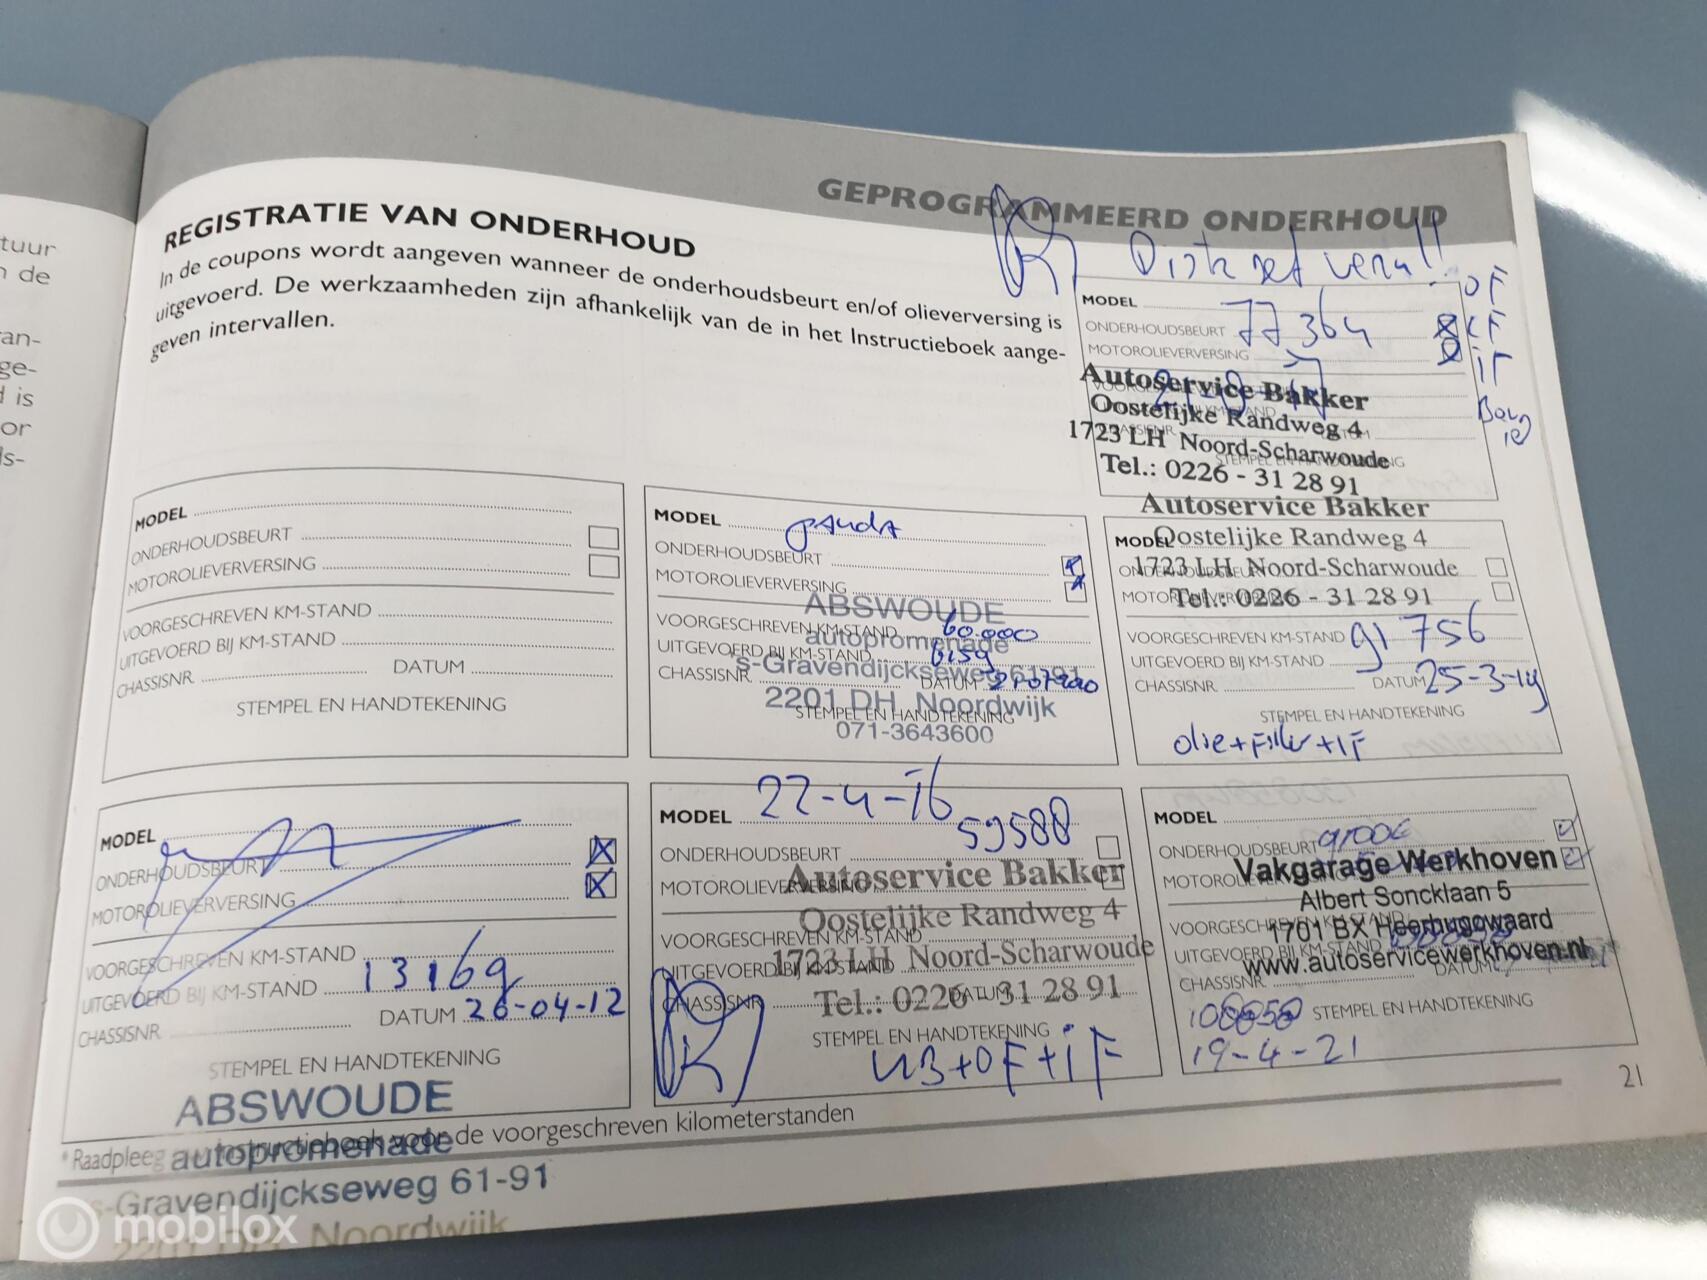 GEPROGRAMMEERD ONDERHOUD
REGISTRATIE VAN ONDERHOUD
In de coupons wordt aangeven wanneer de onderhoudsbeurt en/of olieverversing is
uitgevoerd. De werkzaamheden zijn afhankelijk van de in het Instructieboek aange-
geven intervallen.
tuur
n de
an-
ge-
d is
or
ls-
MODEL
ONDERHOUDSBEURT 77364
MOTOROLIEVERVERSING
OF
iF
Autoservice Bakker
Oostelijke Randweg 4
1723 LH Noord-Scharwoude
Tel.: 0226 - 31 28 91
MODEL
ONDERHOUDSBEURT
MOTOROLIEVERVERSING
VOORGESCHREVEN KM-STAND
UITGEVOERD BIJ KM-STAND
CHASSISNR. DATUM
STEMPEL EN HANDTEKENING
MODEL panda
ONDERHOUDSBEURT
MOTOROLIEVERVERSING
VOORGESCHREVEN KM-STAND 60.000
UITGEVOERD BIJ KM-STAND
CHASSISNR. DATUM
STEMPEL EN HANDTEKENING
ABSWOUDE
autopromenade
's-Gravendijckseweg 61-91
2201 DH Noordwijk
071-3643600
Autoservice Bakker
Oostelijke Randweg 4
1723 LH Noord-Scharwoude
Tel.: 0226 - 31 28 91
MODEL
VOORGESCHREVEN KM-STAND 91756
UITGEVOERD BIJ KM-STAND
CHASSISNR. DATUM 25-3-19
STEMPEL EN HANDTEKENING
olie+Filter+IF
MODEL
ONDERHOUDSBEURT
MOTOROLIEVERVERSING
VOORGESCHREVEN KM-STAND
UITGEVOERD BIJ KM-STAND 13169
CHASSISNR. DATUM 26-04-12
STEMPEL EN HANDTEKENING
ABSWOUDE
autopromenade
s-Gravendijckseweg 61-91
2201 DH Noordwijk
MODEL 22-4-16
59588
ONDERHOUDSBEURT
MOTOROLIEVERVERSING
Autoservice Bakker
Oostelijke Randweg 4
1723 LH Noord-Scharwoude
Tel.: 0226 - 31 28 91
VOORGESCHREVEN KM-STAND
UITGEVOERD BIJ KM-STAND
CHASSISNR. DATUM
STEMPEL EN HANDTEKENING
KB+OF+iF
MODEL
ONDERHOUDSBEURT
Vakgarage Werkhoven
Albert Soncklaan 5
1701 BX Heerhugowaard
www.autoservicewerkhoven.nl
VOORGESCHREVEN KM-STAND
UITGEVOERD BIJ KM-STAND
CHASSISNR. DATUM
STEMPEL EN HANDTEKENING
19-4-21
* Raadpleeg uw instructieboek voor de voorgeschreven kilometerstanden
21
mobilox